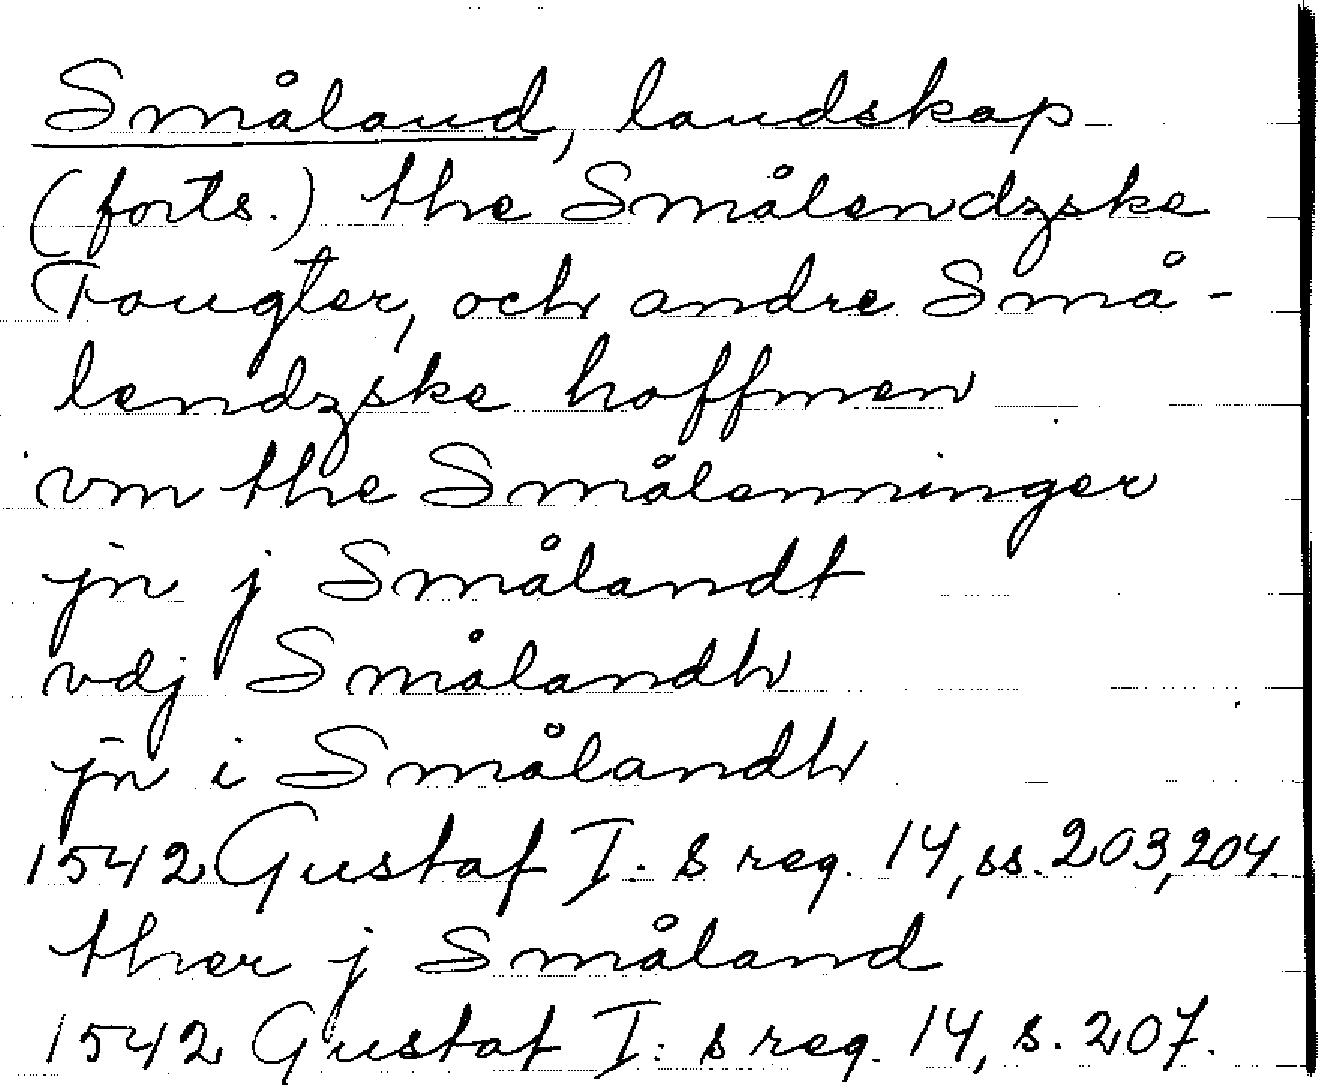 Småland, landskap
(forts.) the Smålendzske
Fougter, och andre Små-
lendzske hoffmen
vm the Smålenninger
jn j Smålandt
vdj Smålandh
jn i Smålandh
1542 Gustaf I:s reg. 14, ss. 203, 204.
ther j Småland
1542 Gustaf I:s reg. 14, s. 207.